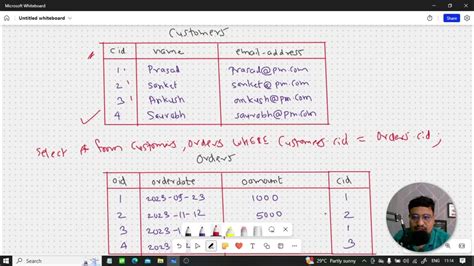 Microsoft Whiteboard
Untitled whiteboard
Customers
cid name email-address
1 Prasad prasad@pm.com
2 Sanket sanket@pm.com
3 Ankush ankush@pm.com
4 Saurabh saurabh@pm.com
select * from customers, orders WHERE customers cid = orders cid;
orders
oid orderdate oamount cid
1 2023-09-23 1000 1
2 2023-11-12 5000 2
3 2023-1 1
4 2023 3
29°C Partly sunny
ENG
11:14